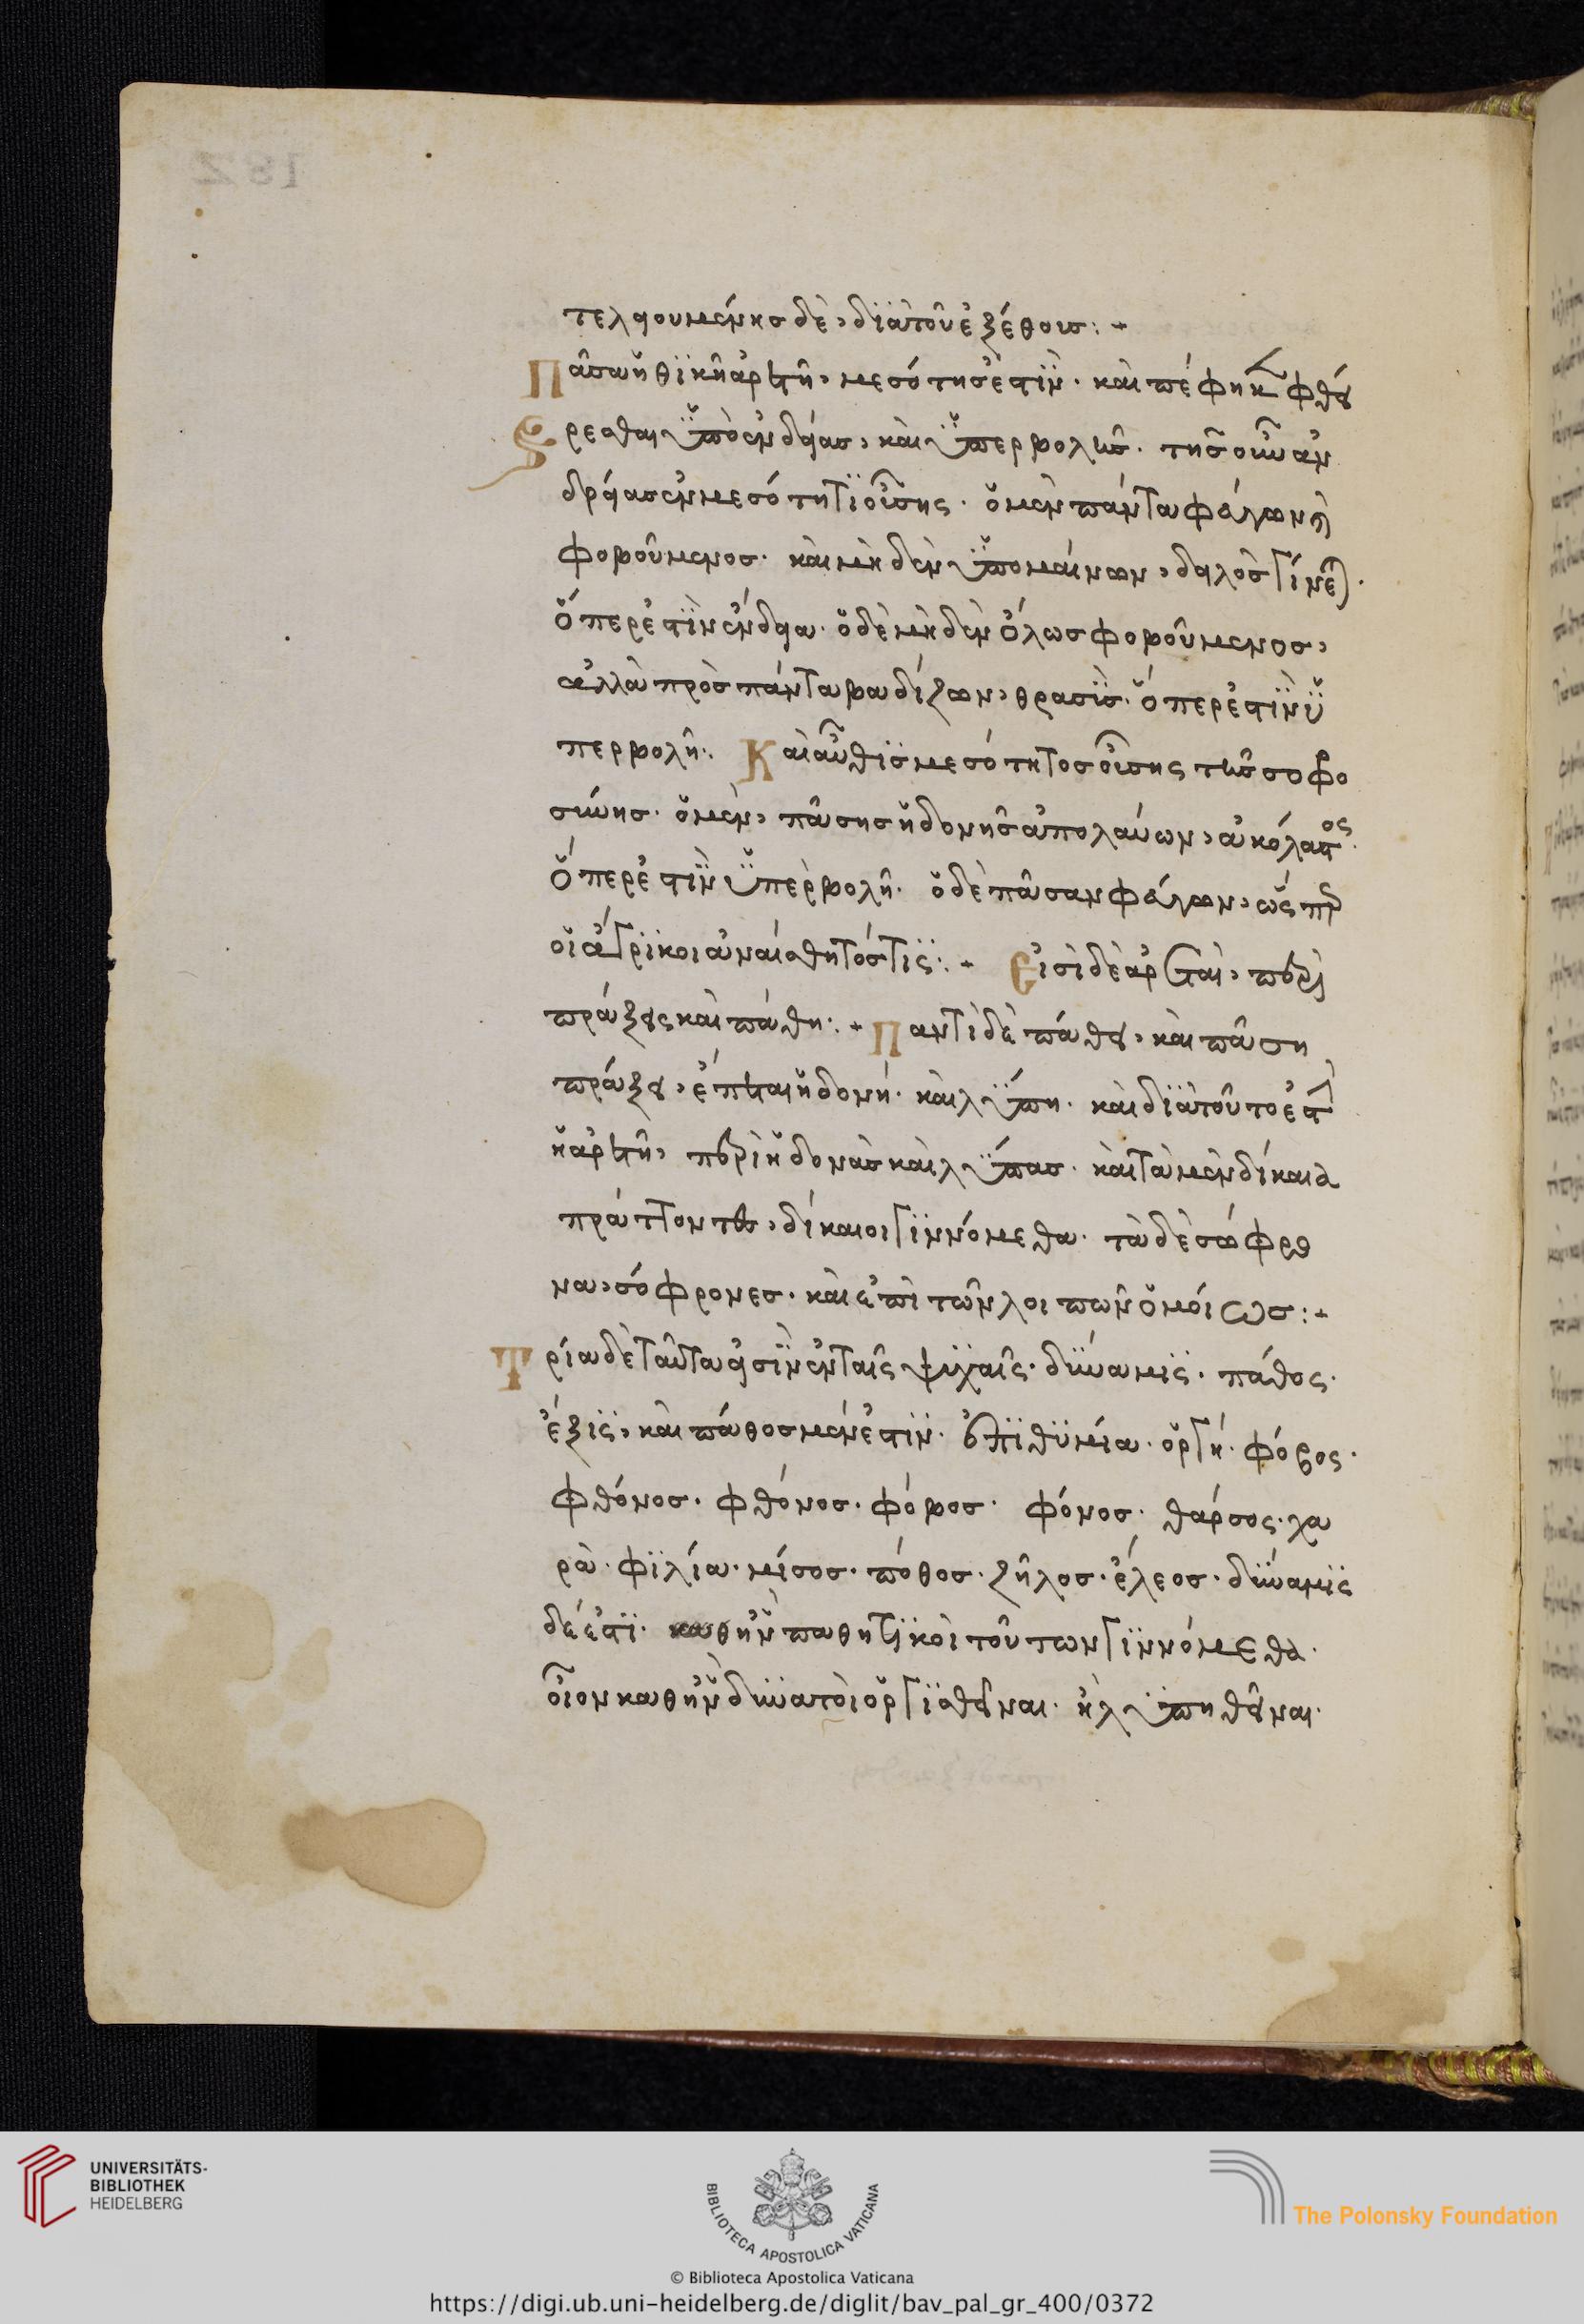 τελειουμένης δὲ, διὰ τοῦ ἐξ ἔθους:+
Πᾶσα ἠθϊκὴ ἀρετὴ, μεσότης ἐστὶν. καὶ πέφηκε φθεί
ρεσθαι ὑπὸ ἐνδείας, καὶ ὑπερβολῆς. τῆς οὖν ἀν
δρείας ἐν μεσότητϊ οὔσης. ὁ μὲν πάντα φεύγων ἢ
φοβούμενος. καὶ μηδὲν ὑπομαίνων, δειλὸς γίνεται.
ὅπερ ἐστὶν ἔνδεια. ὁ δὲ μηδὲν ὅλως φοβούμενος,
ἀλλὰ πρὸς πάντα βαδίζων, θρασῒς. ὅπερ ἐστὶν ὑ
περβολή:. Καὶ αὖθϊς μεσότητος οὔσης τῆς σοφρο
σύνης. ὁ μὲν, πάσης ἡδονῆς ἀπολαύων, ἀκόλαστος.
ὅπερ ἐστὶν ὑπὲρβολή. ὁ δὲ πᾶσαν φεύγων, ὥσπερ
οἱ ἄγρϊκοι ἀναίσθητός τϊς:+ Εἰσὶ δὲ ἀρεταὶ, περὶ
πράξεις καὶ πάθη:+ Παντὶ δὲ πάθει, καὶ πάση
πράξει, ἕπεται ἡδονή. καὶ λύπη. καὶ διὰ τοῦτο ἐστὶ
ἡ ἀρετὴ, περὶ ἡδονὰς καὶ λύπας. καὶ τὰ μὲν δίκαια
πράττοντες, δίκαιοι γϊννόμεθα. τὰ δὲ σώφρο
να, σόφρονες. καὶ ἐπὶ τῶν λοιπῶν ὁμοίως:+
Τρία δὲ ταῦτα εἰσὶν ἐν ταῖς ψϋχαῖς. δύναμϊς. πάθος.
ἕξϊς, καὶ πάθος μὲν ἐστὶν. ἐπϊθϋμία. ὀργή. φόβος.
φθόνος. φθόνος. φόβος. φόνος. θάρσος. χα
ρὰ. φϊλία. μίσος. πόθος. ζῆλος. ἔλεος. δύναμϊς
δέ ἐστϊ. καθ ἣν παθητϊκοὶ τούτων γϊννόμεθα.
οἷον καθ ἣν δυνατοὶ ὀργϊσθεῖναι. ἢ λυπηθεῖναι.
UNIVERSITÄTS-
BIBLIOTHEK
HEIDELBERG
BIBLIOTECA APOSTOLICA VATICANA
The Polonsky Foundation
© Biblioteca Apostolica Vaticana
https://digi.ub.uni-heidelberg.de/diglit/bav_pal_gr_400/0372